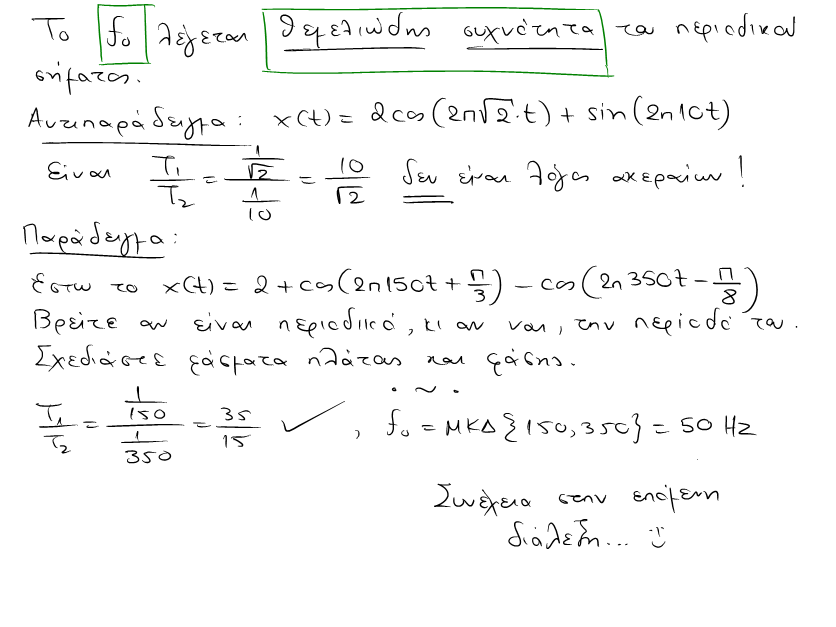 Το f₀ λέγεται θεμελιώδης συχνότητα του περιοδικού
σήματος.
Αντιπαράδειγμα: x(t) = 2cos(2π√2·t) + sin(2π10t)
Είναι T₁/T₂ = (1/√2)/(1/10) = 10/√2 δεν είναι λόγος ακεραίων!
Παράδειγμα:
Έστω το x(t) = 2 + cos(2π150t + π/3) − cos(2π350t − π/8)
Βρείτε αν είναι περιοδικό, κι αν ναι, την περίοδό του.
Σχεδιάστε φάσματα πλάτους και φάσης.
. ~ .
T₁/T₂ = (1/150)/(1/350) = 35/15 ✓, f₀ = ΜΚΔ{150,350} = 50 Hz
Συνέχεια στην επόμενη
διάλεξη... :)